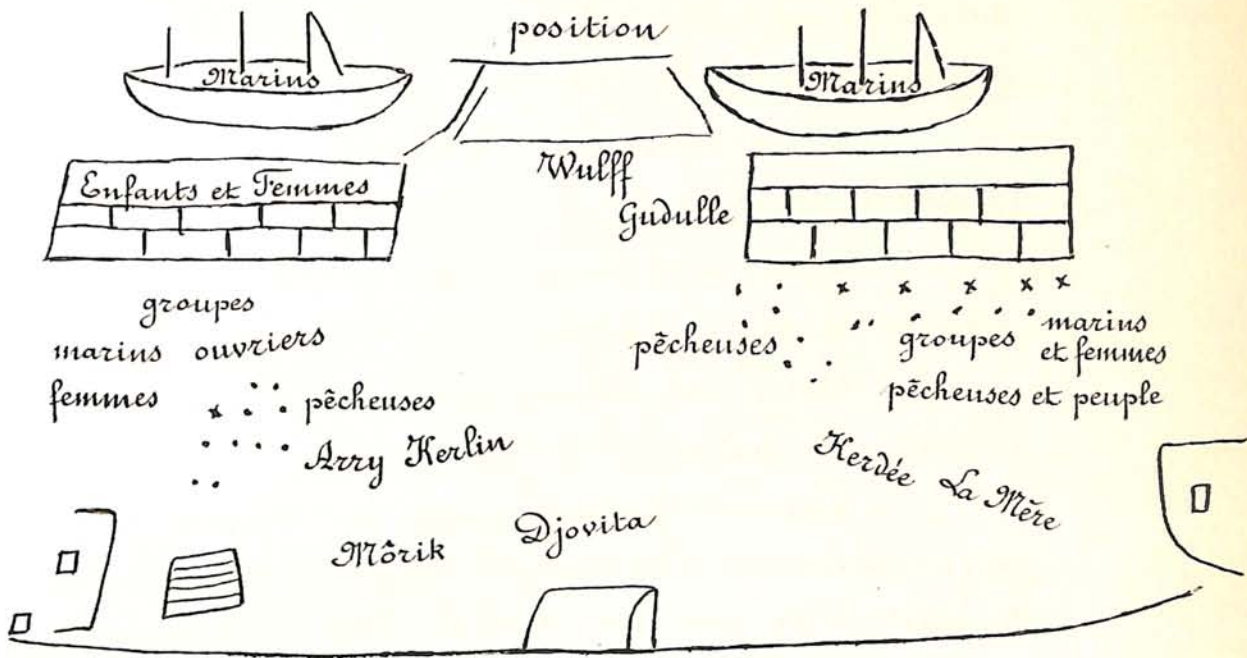 position
Marins
Marins
Enfants et Femmes
Wulff
Gudulle
groupes
marins ouvriers
femmes
pêcheuses
Arry Kerlin
pêcheuses
groupes
marins
et femmes
pêcheuses et peuple
Kerdée La Mère
Môrik
Djovita